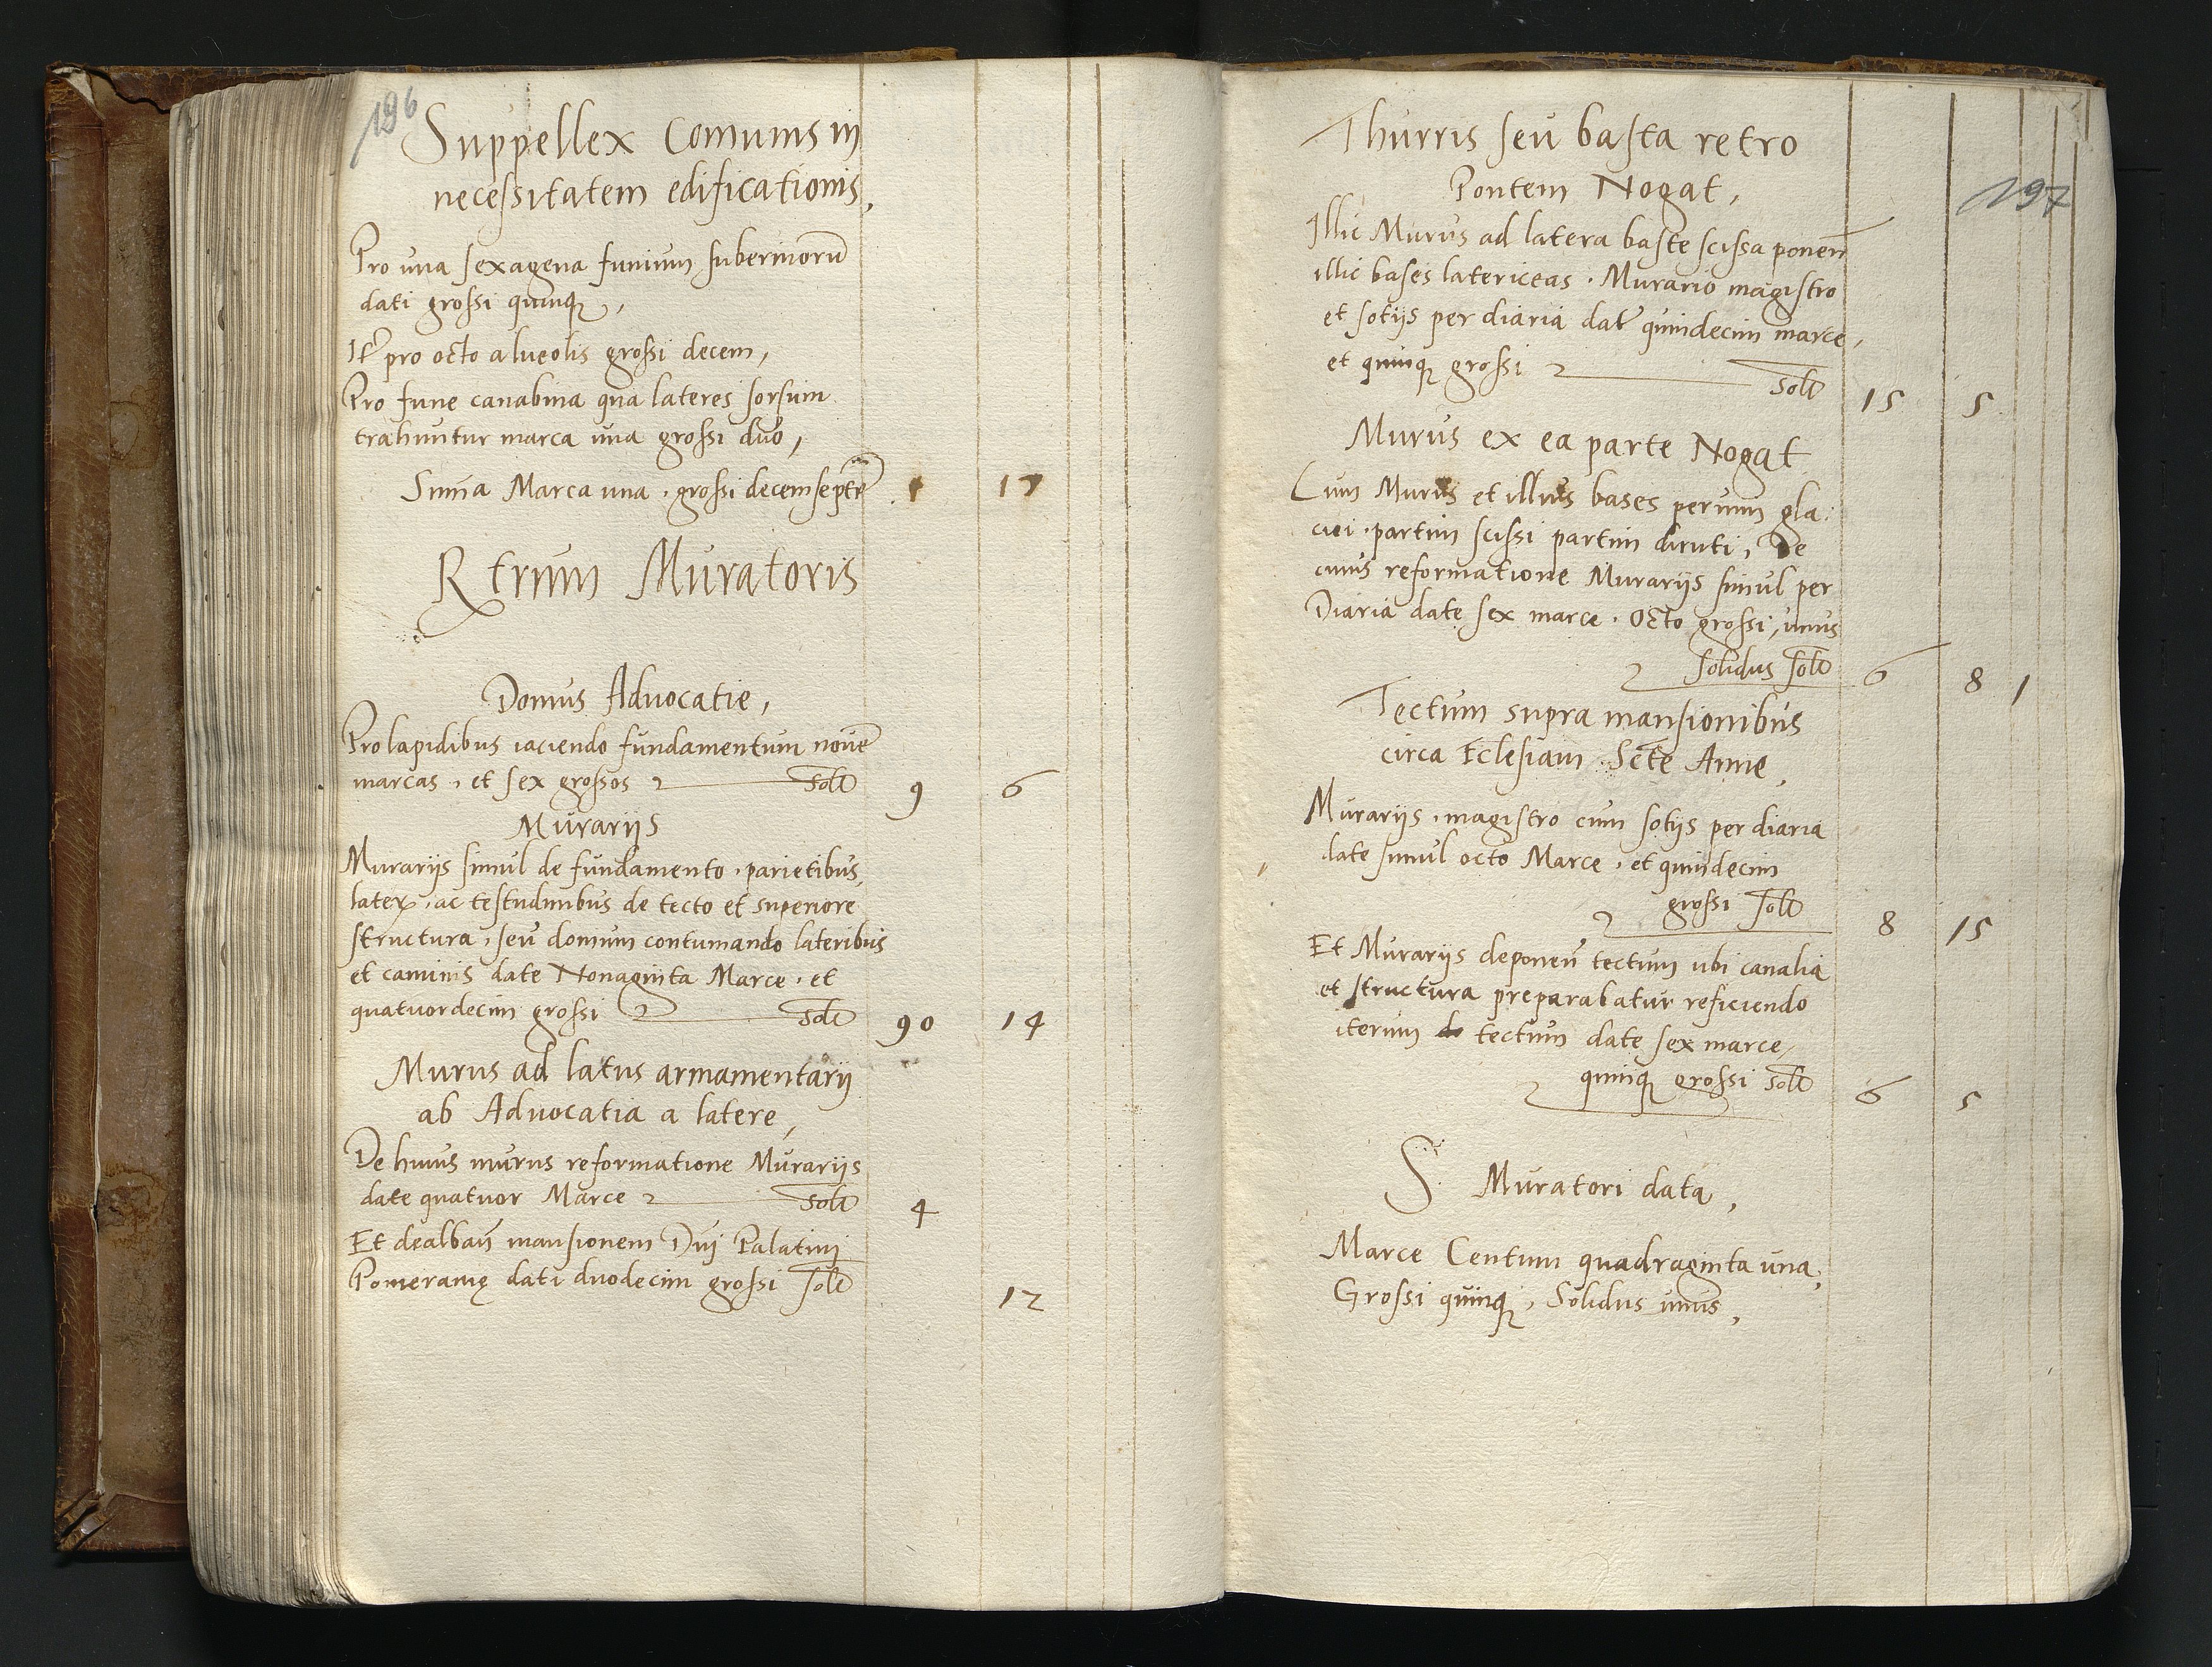 196
Suppellex Comunis in
necessitatem edificationis,
Pro una sexagena funium suberinorū
dati grossi quinqꝫ,
It pro octo alveolis grossi decem,
Pro fune canabina qua lateres sorsum
trahuntur marca una grossi duo,
Sum̄a Marca una . grossi decemseptē 1 17
R trium Muratoris
Domus Advocatie,
Pro lapidibus iaciendo fundamentum novē
marcas, et sex grossos solt 9 6
Murarijs
Murarijs simul de fundamento . parietibus,
laterꝝ, ac testudinibus de tecto et superiore
structura, seu domum contumando lateribus
et caminis date Nonaginta Marce . et
quatuordecim grossi solt 90 14
Murus ad latus armamentarij
ab Advocatia a latere,
De huius murus reformatione Murarijs
date quatuor Marce solt 4
Et dealban̄ mansionem Dn̄i Palatini
Pomeranię dati duodecim grossi solt 12
197
Thurris seu basta retro
Pontem Nogat,
Illic Murus ad latera baste scissa ponen̄
illic bases latericeas . Murario magistro
et sotijs per diaria dat̄ quindecim marce,
et quinqꝫ grossi solt 15 5
Murus ex ea parte Nogat
Cum Murus et illius bases per vim gla
ciei . partim scissi partim diruti, De
cuius reformatione Murarijs simul per
Diaria date sex marce . Octo grossi, unus
solidus solt 6 8 1
Tectum supra mansionibus
circa Eclesiam Scte Anne,
Murarijs . magistro cum sotijs per diaria
date simul octo Marce . et quindecim
grossi solt 8 15
Et Murarijs deponen̄ tectum ubi canalia
et structura preparabatur reficiendo
iterum tectum date sex marce,
quinqꝫ grossi solt 6 5
S Muratori data,
Marce Centum quadraginta una,
Grossi quinqꝫ, Solidus unus,